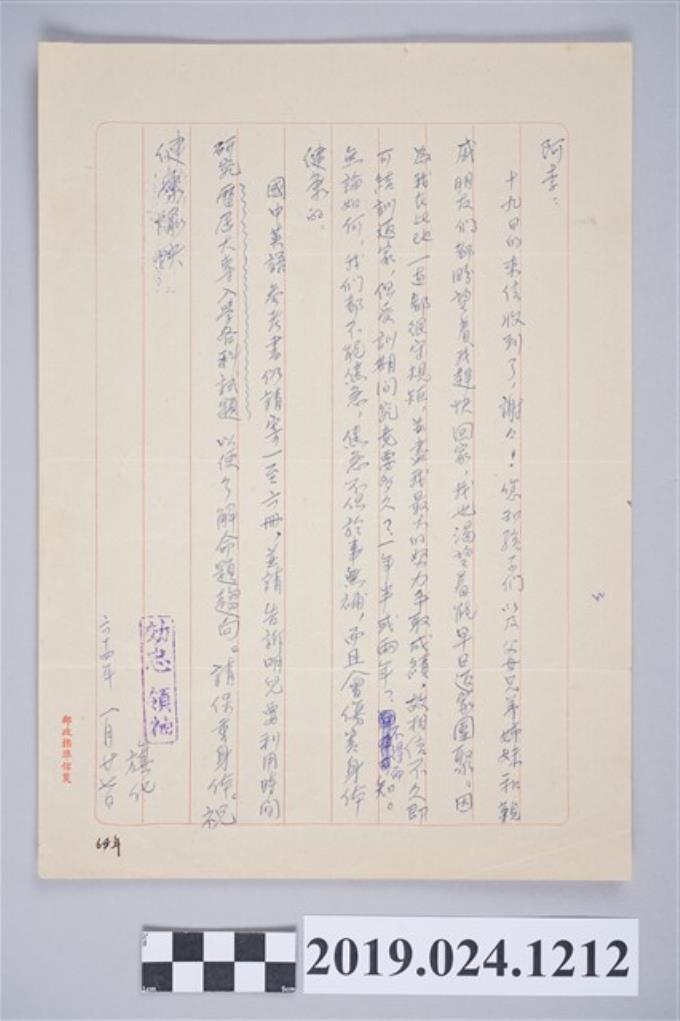 阿李:
十九日的來信收到了,謝々!您和孩子们以及父母兄弟姊妹和親
戚朋友们都盼望着我趕快回家,我也渴望着能早日返家團聚。因
為我在此一直都很守規矩,並盡我最大的努力爭取成績,故相信不久即
可結訓返家,但受訓期间究竟要多久?一年半或兩年?不得而知。
無論如何,我们都不能焦急,焦急不但於事無補,而且會傷害身体
健康的。
國中英語參考書仍請寄一至六冊,並請告訴明兒要利用時间
研究歷屆大專入學各科試題以便了解命題趨向。請保重身体。祝
健康愉快
旗化
效忠領袖
六十四年一月廿七日
郵政標準信箋
64年
2019.024.1212
1cm
5cm